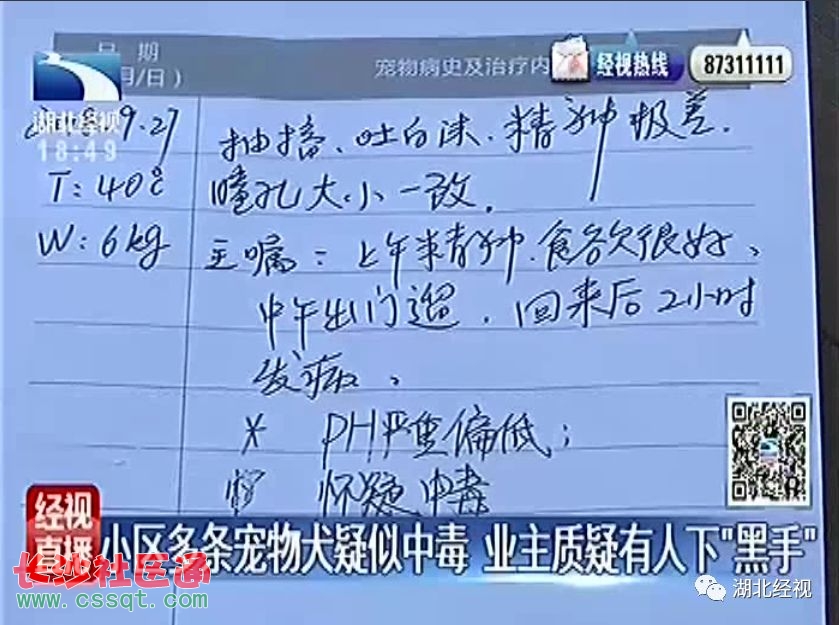 日 期
月/日）
宠物病史及治疗内
经视热线
87311111
湖北经视
18:49
9.27
抽搐、吐白沫、精神极差.
T: 40℃
瞳孔大小一致.
W: 6kg
主嘱: 上午精神.食欲很好、
中午出门遛. 回来后2小时
发病、
* PH严重偏低;
怀疑中毒
经视
直播
小区多条宠物犬疑似中毒 业主质疑有人下"黑手"
长沙社区通
www.cssqt.com
湖北经视